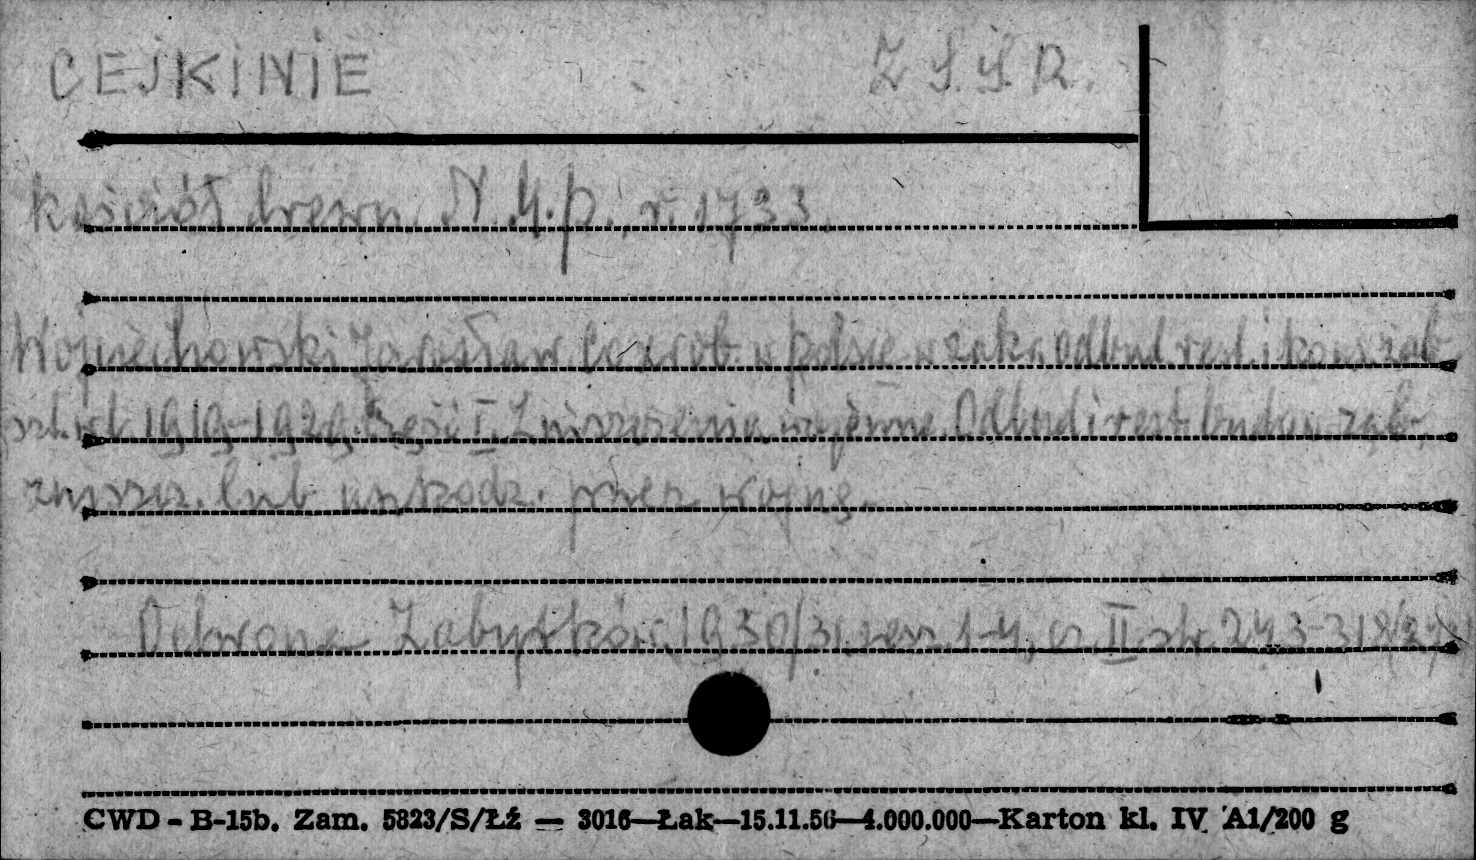 CEJKINIE Z.S.S.R.
kościół drewn. N.M.P. r. 1733.
Wojciechowski Jarosław Co zrob. w Polsce w zakr. odbud. rest. i kons. zab.
szt. od 1919-1929. Część I. Zniszczenia wojenne. Odbud. i rest. budow. zab.
zniszcz. lub uszkodz. przez wojnę.
Ochrona Zabytków, 1930/31 zesz. 1-4, cz. II str. 243-318
CWD - B-15b. Zam. 5823/S/Łź — 3016—Łak—15.11.56—4.000.000—Karton kl. IV A1/200 g